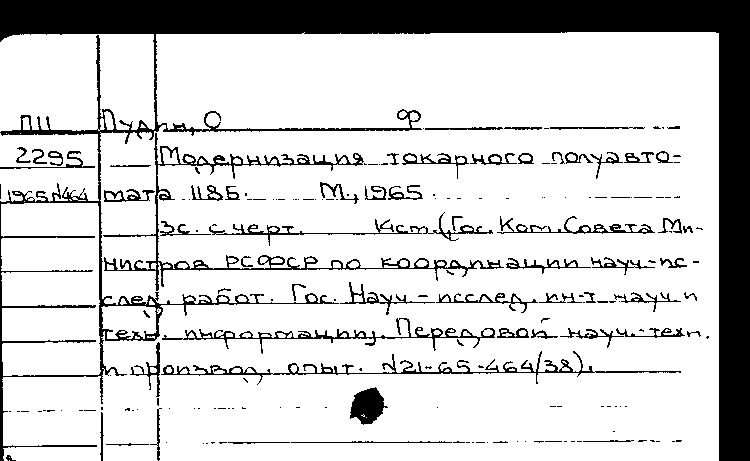 П11 Пудин, О Ф
2295 Модернизация токарного полуавто-
1965 №464 мата 118Б. М., 1965.
3с. с черт. (Гос. Ком. Совета Ми-
нистров РСФСР по координации науч.-ис-
след. работ. Гос. Науч-исслед. ин-т науч и
техн. информации). Передовой науч.-техн.
и производ. опыт. №21-65-464/38).